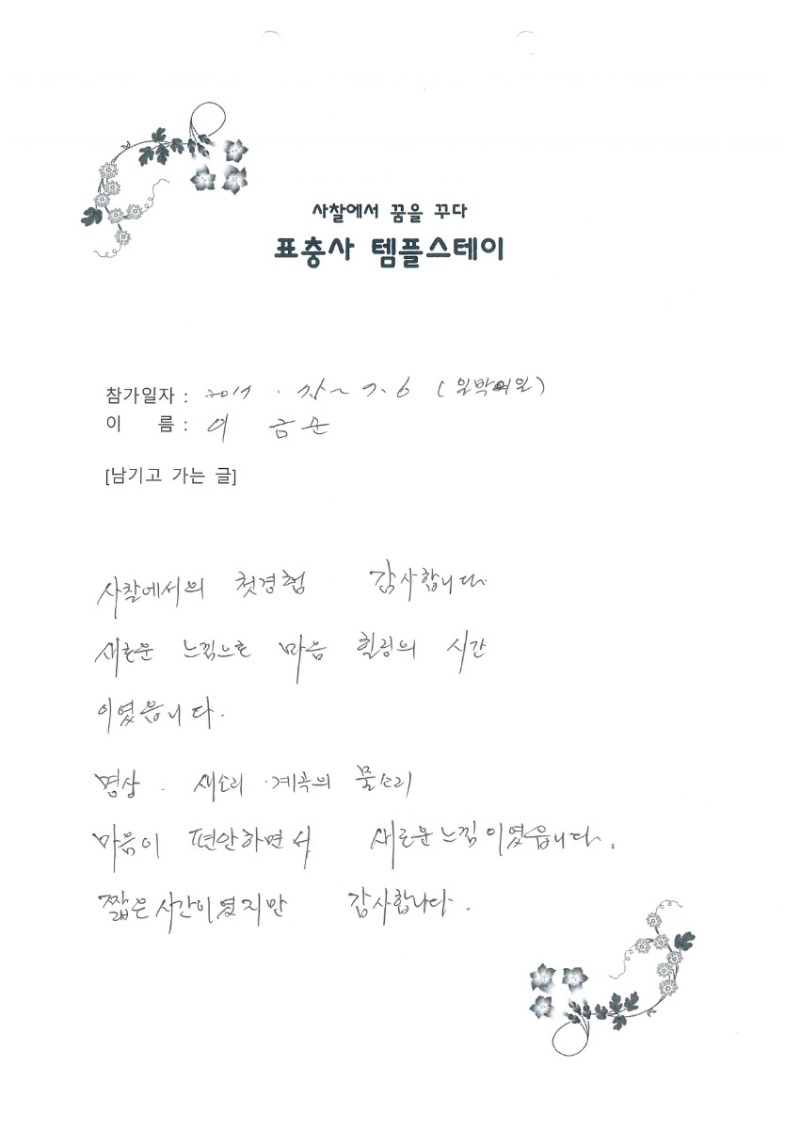 사찰에서 꿈을 꾸다
표충사 템플스테이
참가일자 : 2017 . 7.5 ~ 7.6 (일박이일)
이 름 : 이 금순
[남기고 가는 글]
사찰에서의 첫경험 감사합니다.
새로운 느낌으로 마음 힐링의 시간
이였읍니다.
명상 . 새소리 . 계곡의 물소리
마음이 편안하면서 새로운 느낌이였읍니다.
짧은 시간이였지만 감사합니다.